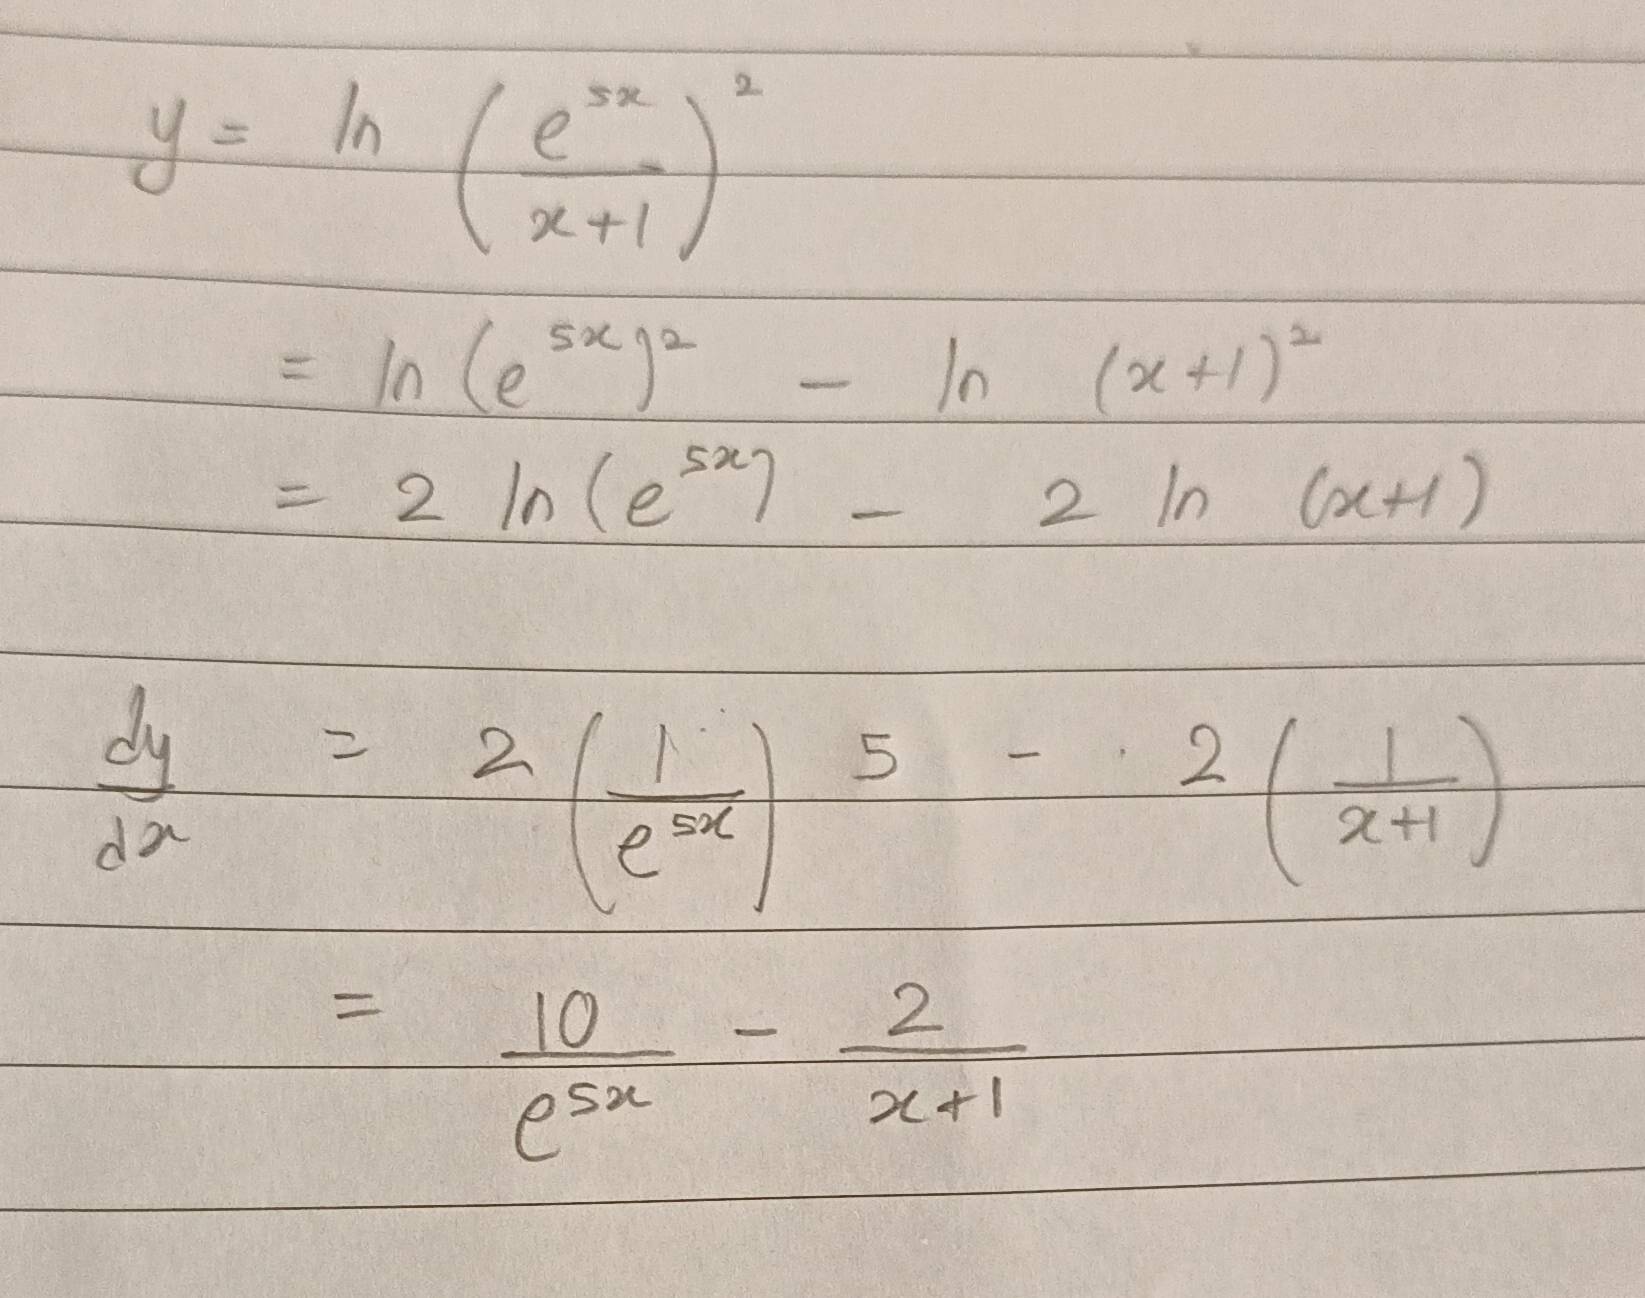 y = ln (e^{5x}/(x+1))^2
= ln (e^{5x})^2 - ln (x+1)^2
= 2 ln (e^{5x}) - 2 ln (x+1)
dy/dx = 2 (1/e^{5x}) 5 - 2 (1/(x+1))
= 10/e^{5x} - 2/(x+1)